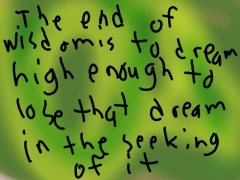 The end of
wisdom is to dream
high enough to
lose that dream
in the seeking
of it